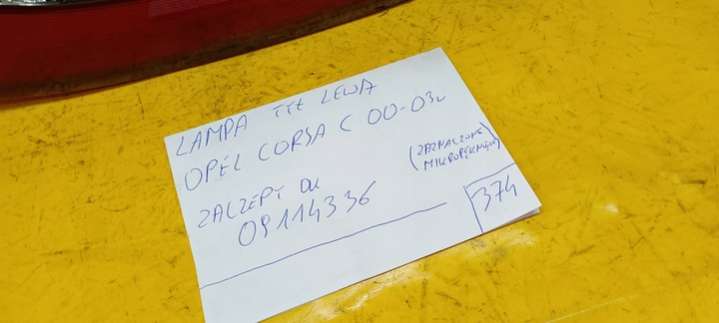 LAMPA TYŁ LEWA
OPEL CORSA C 00-03r
ZACZEPY OK
09114336
(ZAZNACZONE
MIKROPĘKNIĘCIA)
374